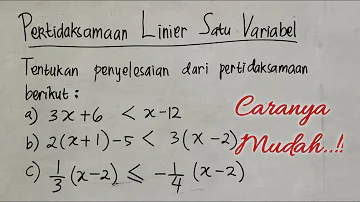 Pertidaksamaan Linier Satu Variabel
Tentukan penyelesaian dari pertidaksamaan
berikut :
a) 3x + 6 < x - 12
b) 2(x + 1) - 5 < 3(x - 2)
c) 1/3 (x - 2) ≤ - 1/4 (x - 2)
Caranya
Mudah..!!